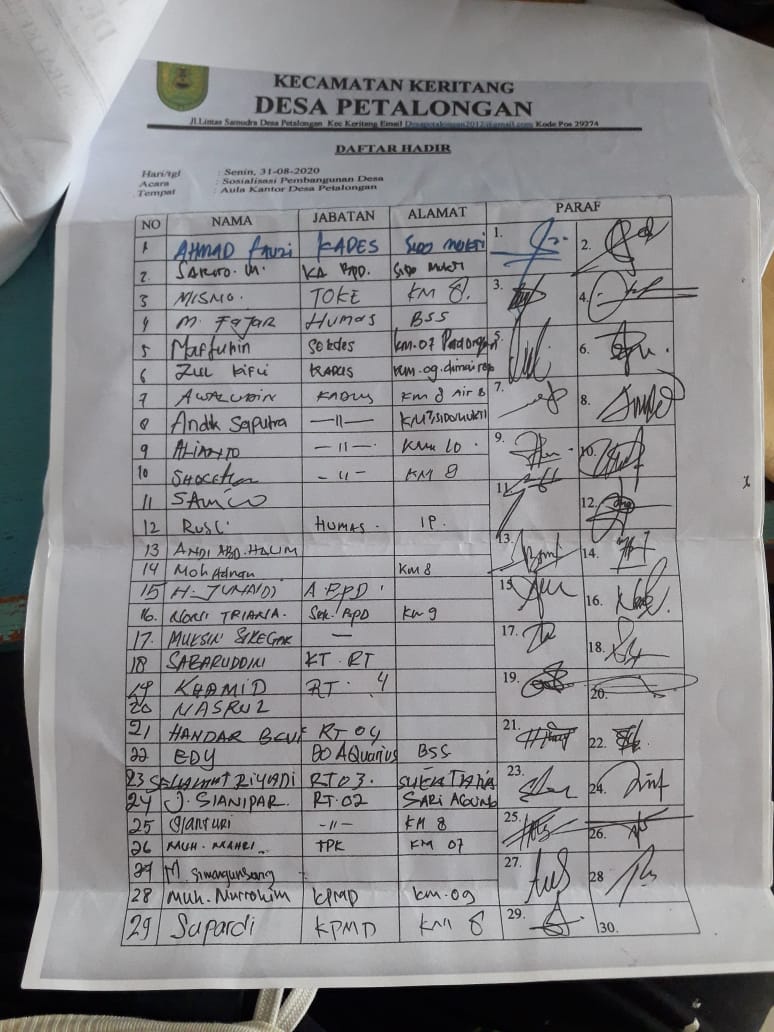 KECAMATAN KERITANG
DESA PETALONGAN
Jl.Lintas Samudra Desa Petalongan Kec Keritang Email Desapetalongan2017@gmail.com Kode Pos 29274
DAFTAR HADIR
Hari/tgl : Senin, 31-08-2020
Acara : Sosialisasi Pembangunan Desa
Tempat : Aula Kantor Desa Petalongan
NO NAMA JABATAN ALAMAT PARAF
1 AHMAD FAUZI KADES SIDO MUKTI 1. 2.
2. SARITO. M. KA BPD. SIDO MUKTI
3 MISMO. TOKE KM 8. 3. 4.
4 M. FAJAR HUMAS BSS
5 Maftuhin Sekdes km.07 5. 6.
6 ZUL KIFLI KADUS km.09.
7 AWALUDIN KADUS KM 8 Air 8 7. 8.
8 Andik Saputra —11— KM 7 SIDOMUKTI
9 ALIANTO —11—. KM 10. 9. 10.
10 —11— KM 8
11 SAMCO 11. 12.
12 RUSLI HUMAS. IP.
13 ANDI ABD. HALIM 13. 14.
14 Moh Adnan KM 8
15 H. JUNAIDI A BPD. 15. 16.
16. NOVI TRIANA. Sek. BPD KM 9
17. MUKSIN SIREGAR — 17. 18.
18 SABARUDDIN KT. RT
19 KHAMID RT. 4 19. 20.
20 NASRUL
21 HANDAR RT 04 21. 22.
22 EDY DO AQuarius BSS
23 SELAMAT RIYADI RT 03. SUKA TANI 23. 24.
24 J. SIANIPAR. RT. 02 SARI AGUNG
25 GIANTURI -11- KM 8 25. 26.
26 MUH. MAHRI TPK KM 07
27 M. Simangunsong 27. 28
28 Muh. Nurrohim KPMD km.09
29 Supardi KPMD KM 8 29. 30.